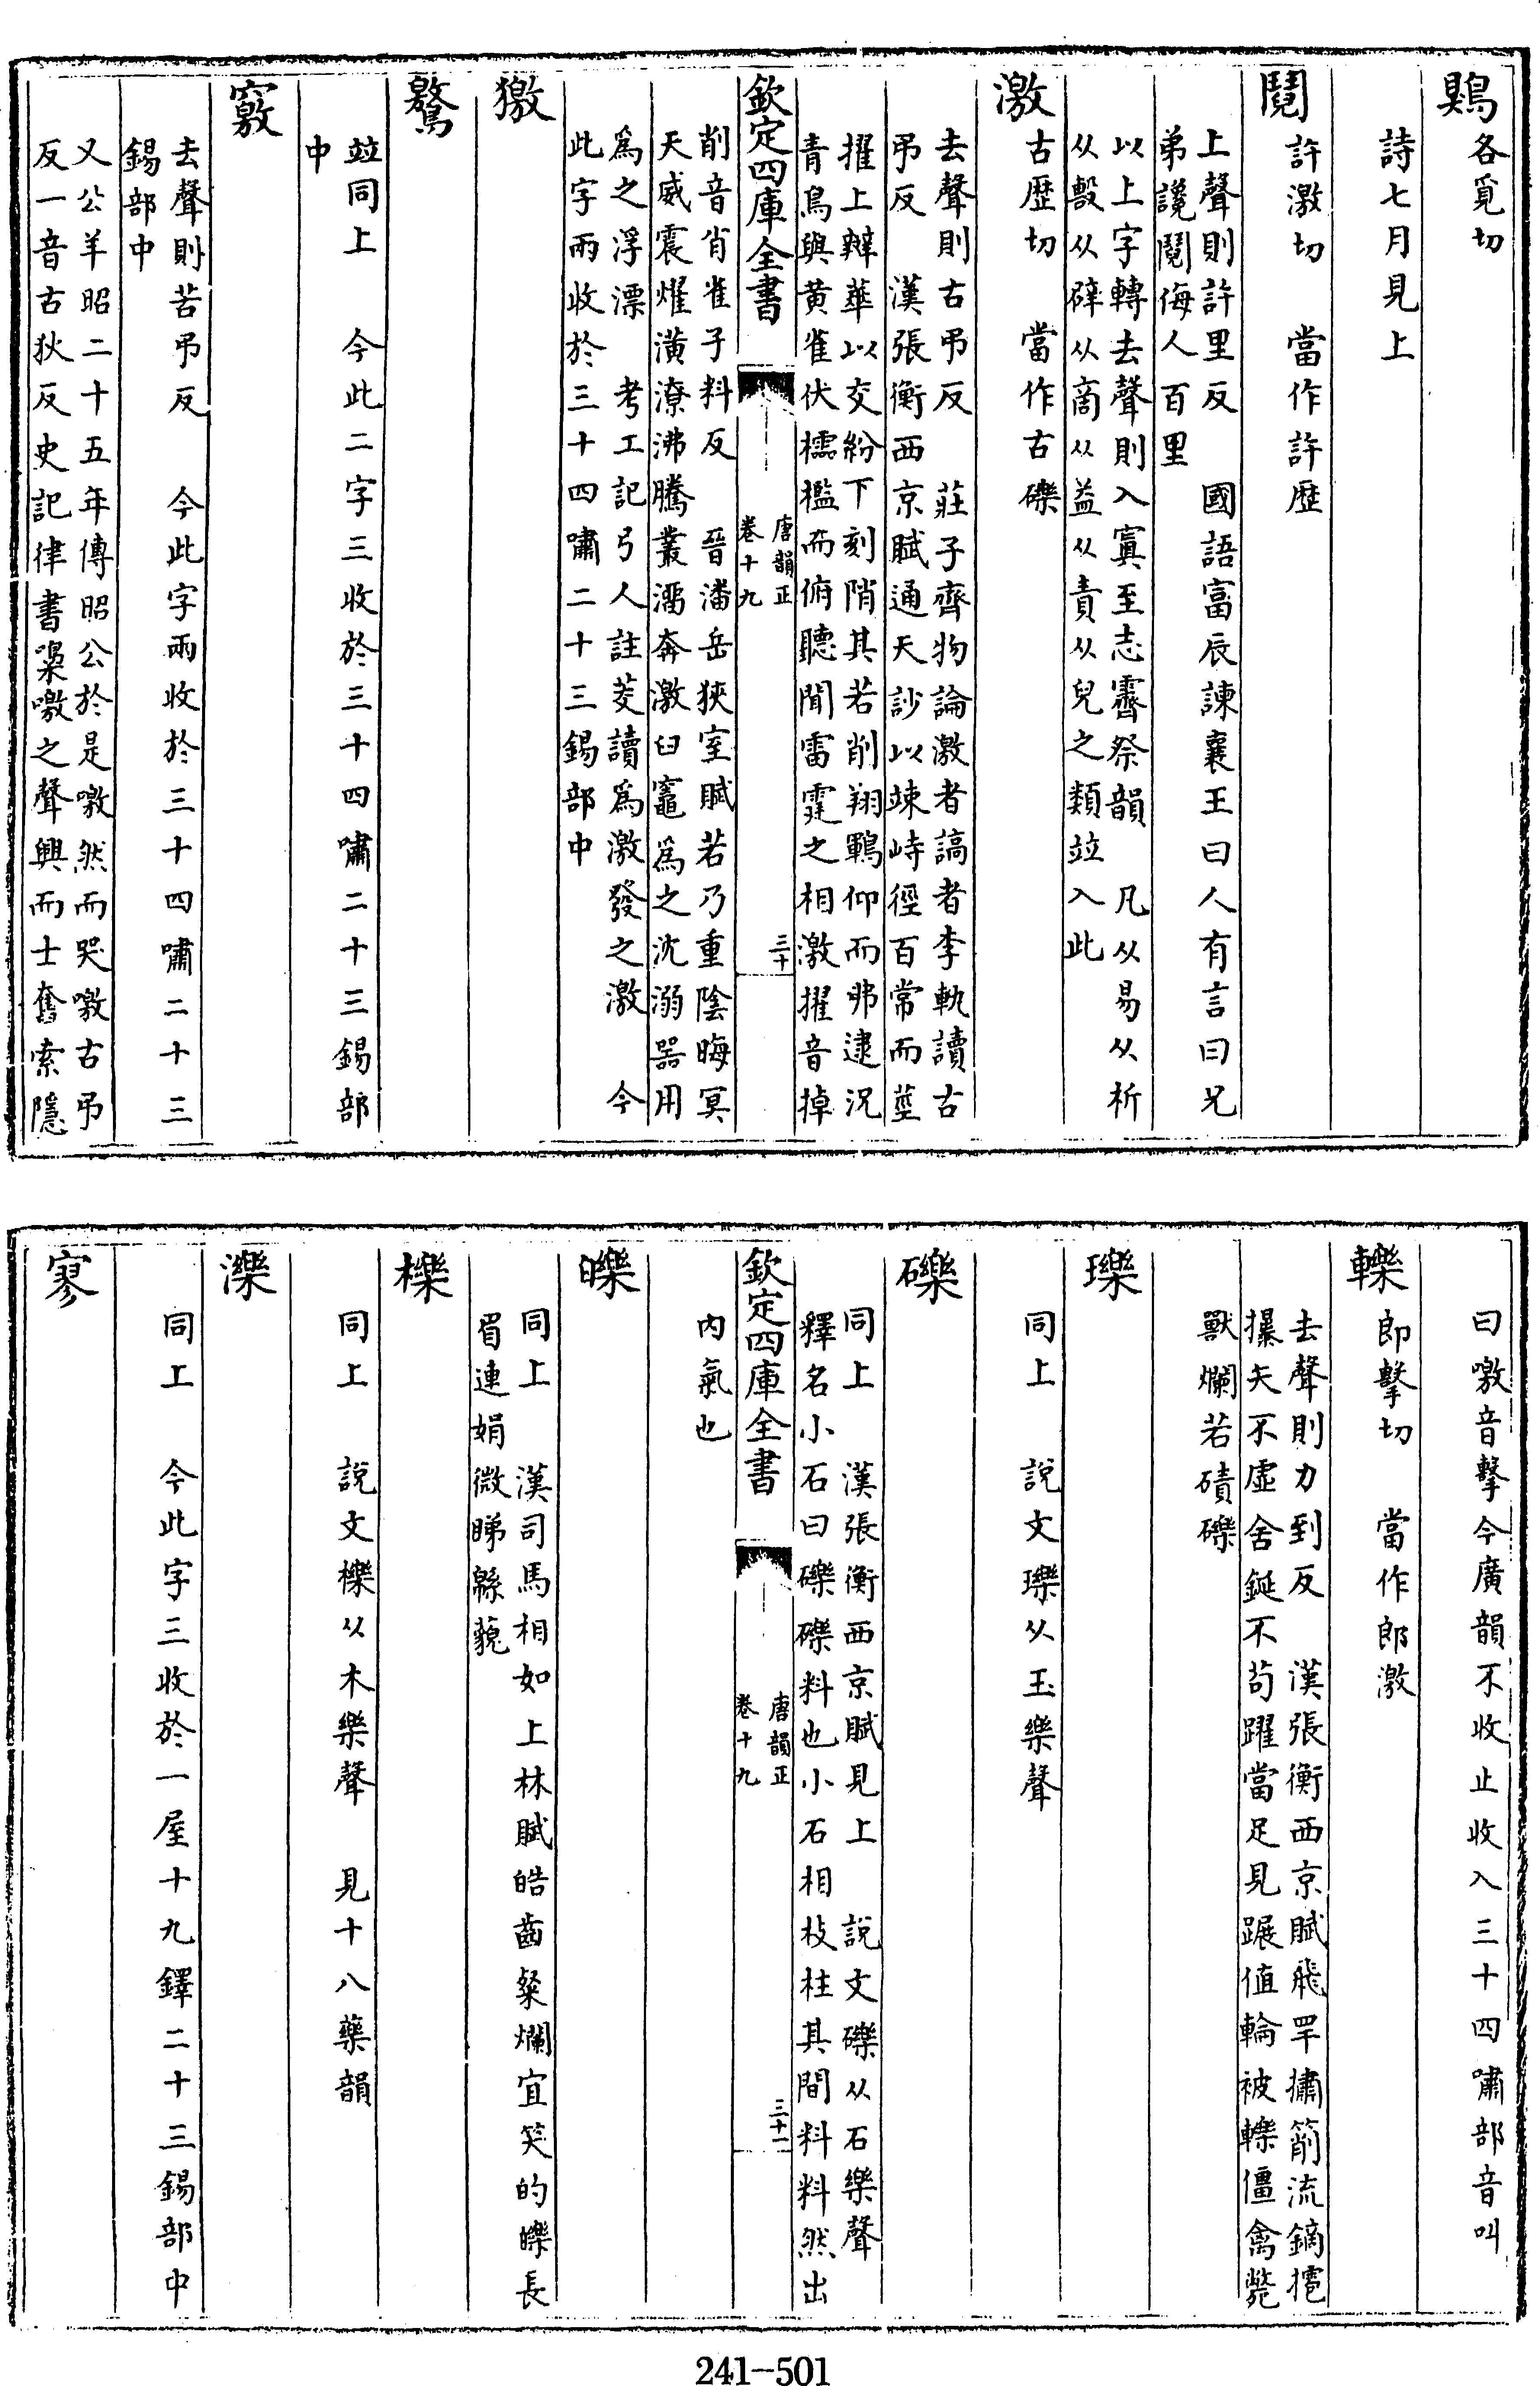 鶪各覓切
詩七月見上
鬩許激切　當作許歴
上聲則許里反　國語富辰諫襄王曰人有言曰兄
弟讒鬩侮人百里
以上字轉去聲則入寘至志霽祭韻　凡从易从析
从毄从辟从啇从益从責从兒之類竝入此
激古歴切　當作古礫
去聲則古弔反　莊子齊物論激者謞者李軌讀古
弔反　漢張衡西京賦通天訬以竦峙徑百常而莖
擢上辬華以交紛下刻陗其若削翔鶤仰而弗逮況
青鳥與黄雀伏櫺檻而俯聽聞雷霆之相激擢音掉
欽定四庫全書
唐韻正
卷十九
三十
削音肖雀子料反　晉潘岳狹室賦若乃重陰晦冥
天威震燿潢潦沸騰叢溜奔激臼竈爲之沈溺器用
爲之浮漂　考工記弓人註茭讀爲激發之激　今
此字兩收於三十四嘯二十三錫部中
獥
驚
竝同上　今此二字三收於三十四嘯二十三錫部
中
竅
去聲則苦弔反　今此字兩收於三十四嘯二十三
錫部中
又公羊昭二十五年傳昭公於是噭然而哭噭古弔
反一音古狄反史記律書㗚噭之聲興而士奮索隱
曰噭音擊今廣韻不收止收入三十四嘯部音叫
轢郎擊切　當作郎激
去聲則力到反　漢張衡西京賦飛罕潚箾流鏑㩧
㩧矢不虛舍鋋不苟躍當足見蹍值輪被轢僵禽斃
獸爛若磧礫
瓅
同上　說文瓅从玉樂聲
礫
同上　漢張衡西京賦見上　說文礫从石樂聲
釋名小石曰礫礫料也小石相枝柱其間料料然出
欽定四庫全書
唐韻正
卷十九
三十一
內氣也
皪
同上　漢司馬相如上林賦皓齒粲爛宜笑的皪長
眉連娟微睇緜藐
櫟
同上　說文櫟从木樂聲　見十八藥韻
濼
同上　今此字三收於一屋十九鐸二十三錫部中
寥
241-501